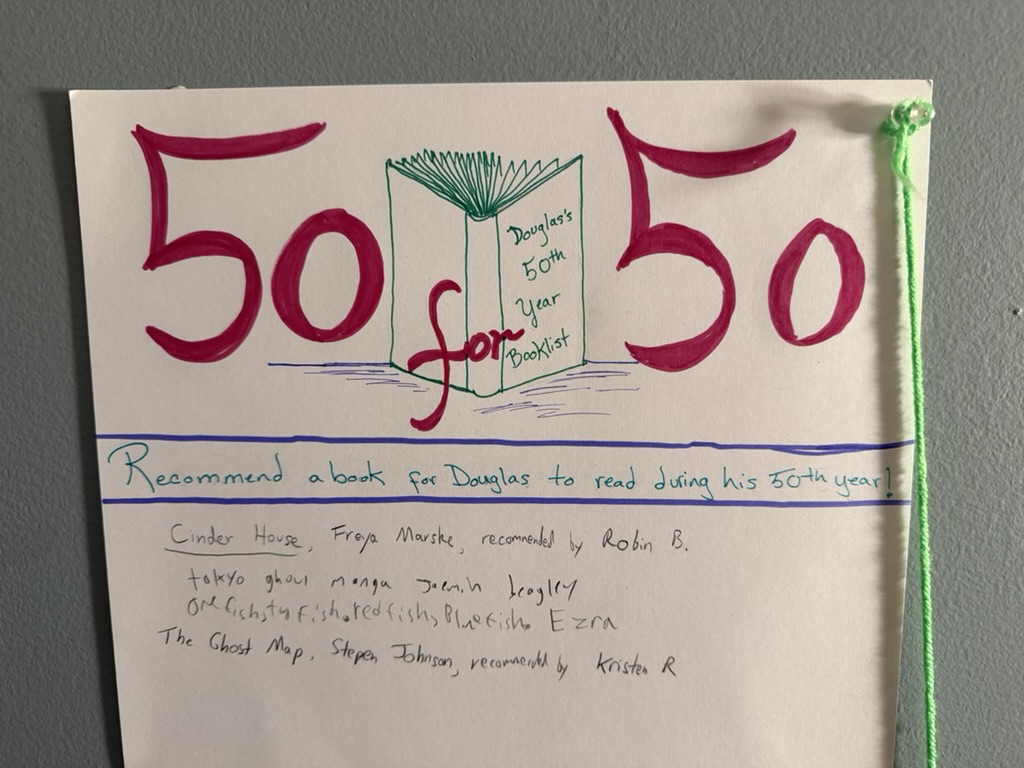 50 for 50
Douglas's
50th
Year
Booklist
Recommend a book for Douglas to read during his 50th year!
Cinder House, Freya Marske, recommended by Robin B.
tokyo ghoul manga Jaemin
fish, redfish, Bluefish. Ezra
The Ghost Map, Stepen Johnson, recommended by Kristen R